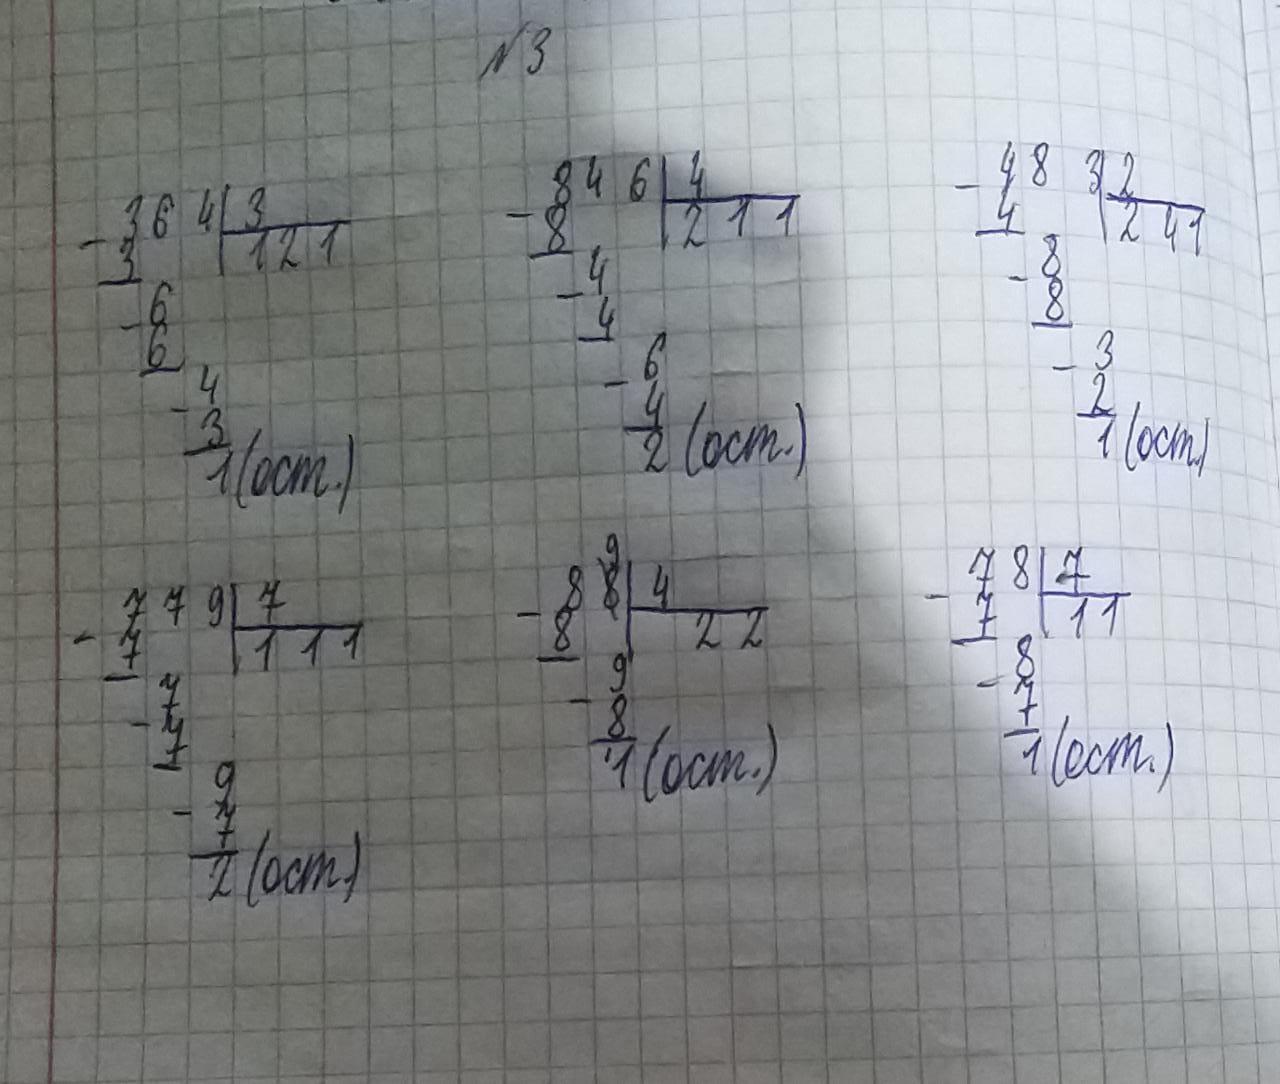 №3
364|3
-3 |121
-6
6
-4
3
1(ост.)
846|4
-8 |211
-4
4
-6
4
2(ост.)
483|2
-4 |241
-8
8
-3
2
1(ост.)
779|7
-7 |111
-7
7
-9
7
2(ост.)
89|4
-8 |22
-9
8
1(ост.)
78|7
-7 |11
-8
7
1(ост.)